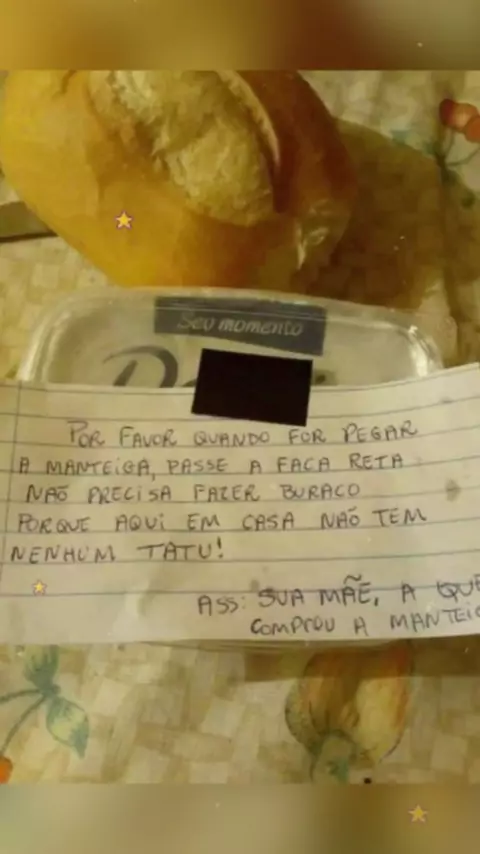 Seu momento
POR FAVOR QUANDO FOR PEGAR
A MANTEIGA, PASSE A FACA RETA
NÃO PRECISA FAZER BURACO
PORQUE AQUI EM CASA NÃO TEM
NENHUM TATU!
ASS: SUA MÃE, A QUE
COMPROU A MANTEIG